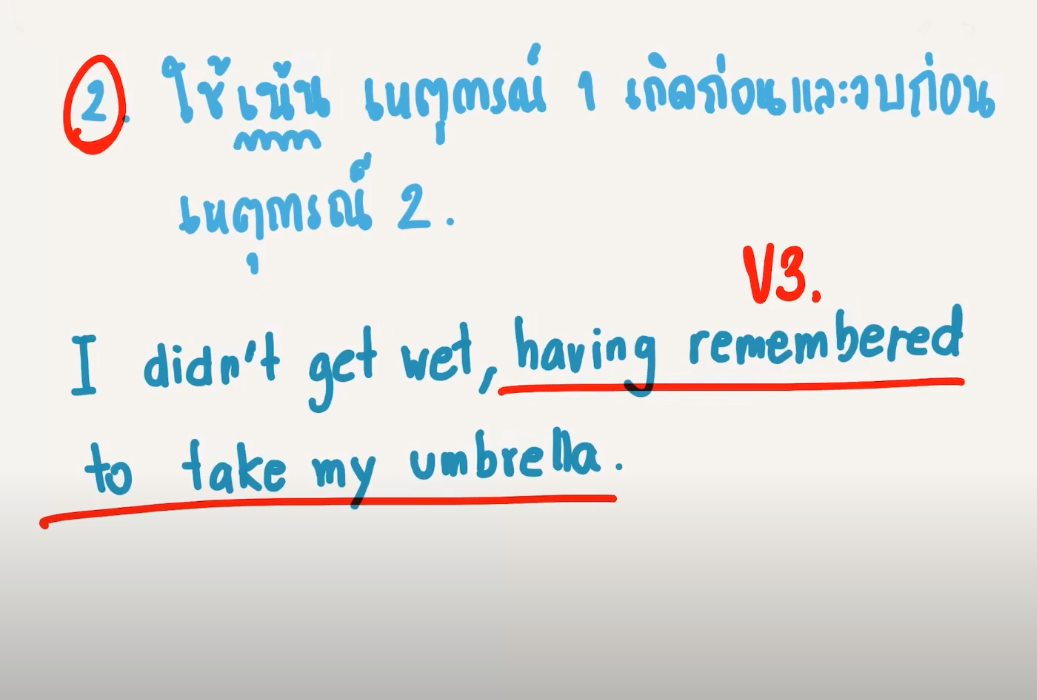 2. ใช้เน้น เหตุการณ์ 1 เกิดก่อนและจบก่อน
เหตุการณ์ 2.
V3.
I didn't get wet, having remembered
to take my umbrella.